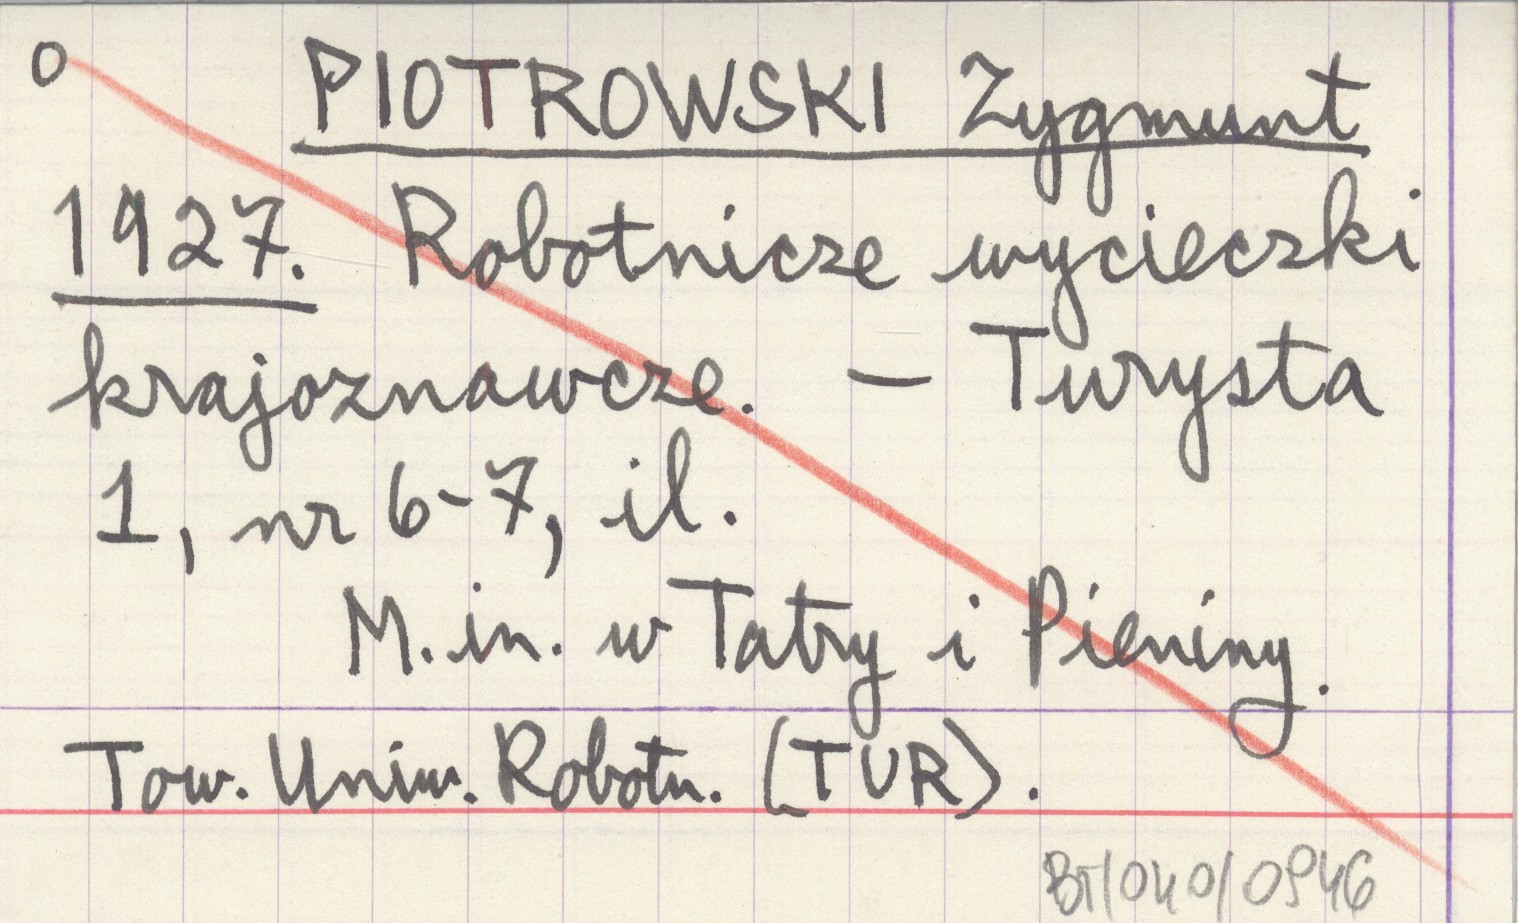 o PIOTROWSKI Zygmunt
1927. Robotnicze wycieczki
krajoznawcze. — Turysta
1, nr 6-7, il.
M. in. w Tatry i Pieniny.
Tow. Uniw. Robotn. (TUR).
BT/040/0946